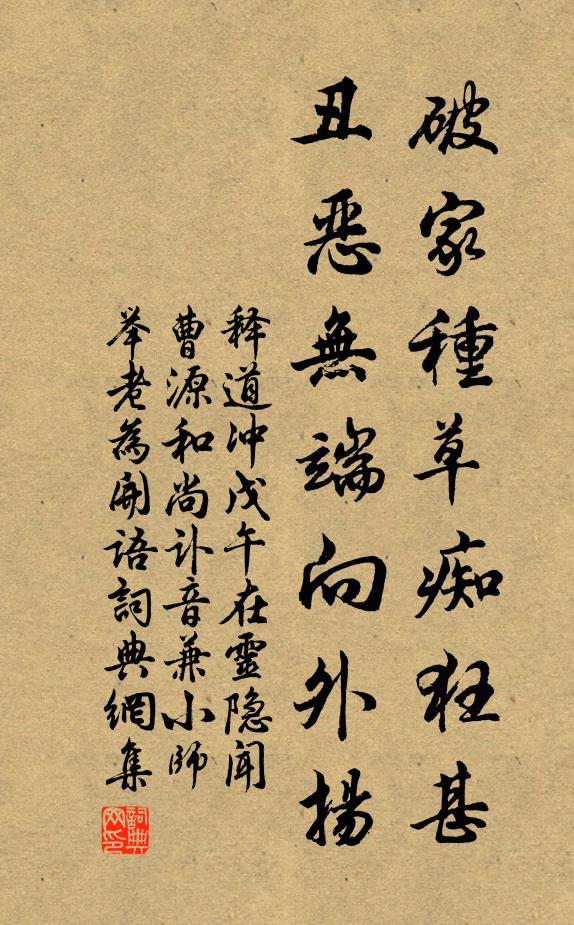 破家種草痴狂甚
丑惡無端向外揚
释道冲戊午在靈隐闻
曹源和尚讣音兼小師
举老為開語詞典網集
詞典网印